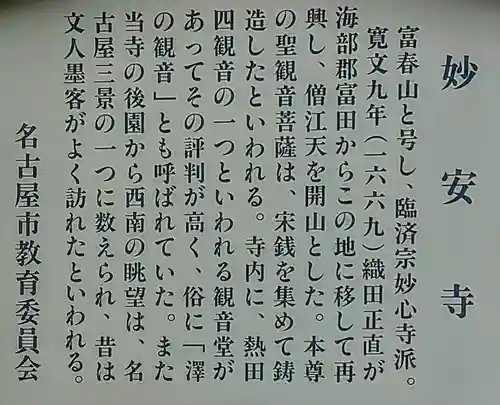 妙安寺
富春山と号し、臨済宗妙心寺派。
寛文九年(一六六九)織田正直が
海部郡富田からこの地に移して再
興し、僧江天を開山とした。本尊
の聖観音菩薩は、宋銭を集めて鋳
造したといわれる。寺内に、熱田
四観音の一つといわれる観音堂が
あってその評判が高く、俗に「澤
の観音」とも呼ばれていた。また
当寺の後園から西南の眺望は、名
古屋三景の一つに数えられ、昔は
文人墨客がよく訪れたといわれる。
名古屋市教育委員会